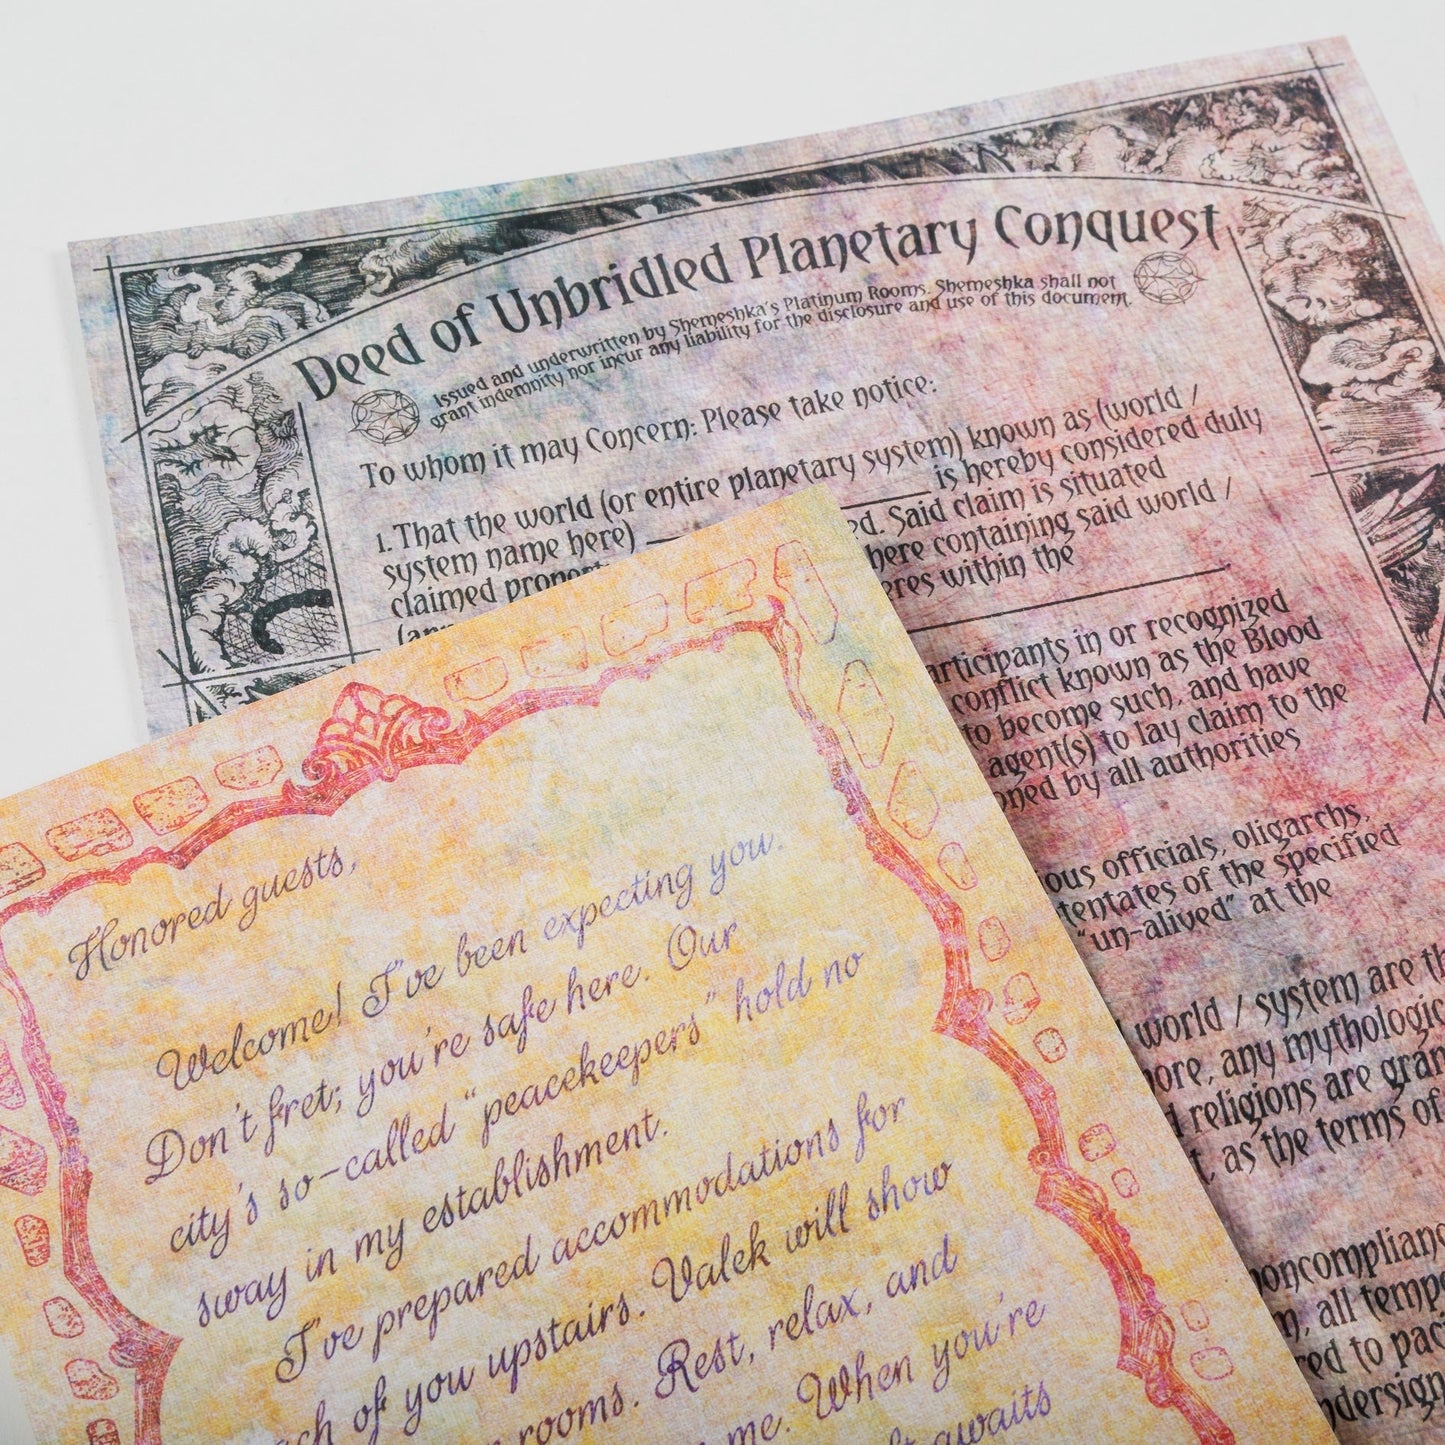 Deed of Unbridled Planetary Conquest
Issued and underwritten by Shemeshka's Platinum Rooms. Shemeshka shall not
grant indemnity nor incur any liability for the disclosure and use of this document.
To whom it may Concern: Please take notice:
1. That the world (or entire planetary system) known as (world /
system name here) is hereby considered duly
claimed ed. Said claim is situated
here containing said world /
within the
in or recognized
conflict known as the Blood
to become such, and have
agent(s) to lay claim to the
by all authorities
officials, oligarchs,
of the specified
"un-alived" at the
world / system are
any
religions are
as the terms of
all
to
Honored guests,
Welcome! I've been expecting you.
Don't fret; you're safe here. Our
city's so-called "peacekeepers" hold no
sway in my establishment.
I've prepared accommodations for
of you upstairs. Valek will show
rooms. Rest, relax, and
me. When you're
awaits